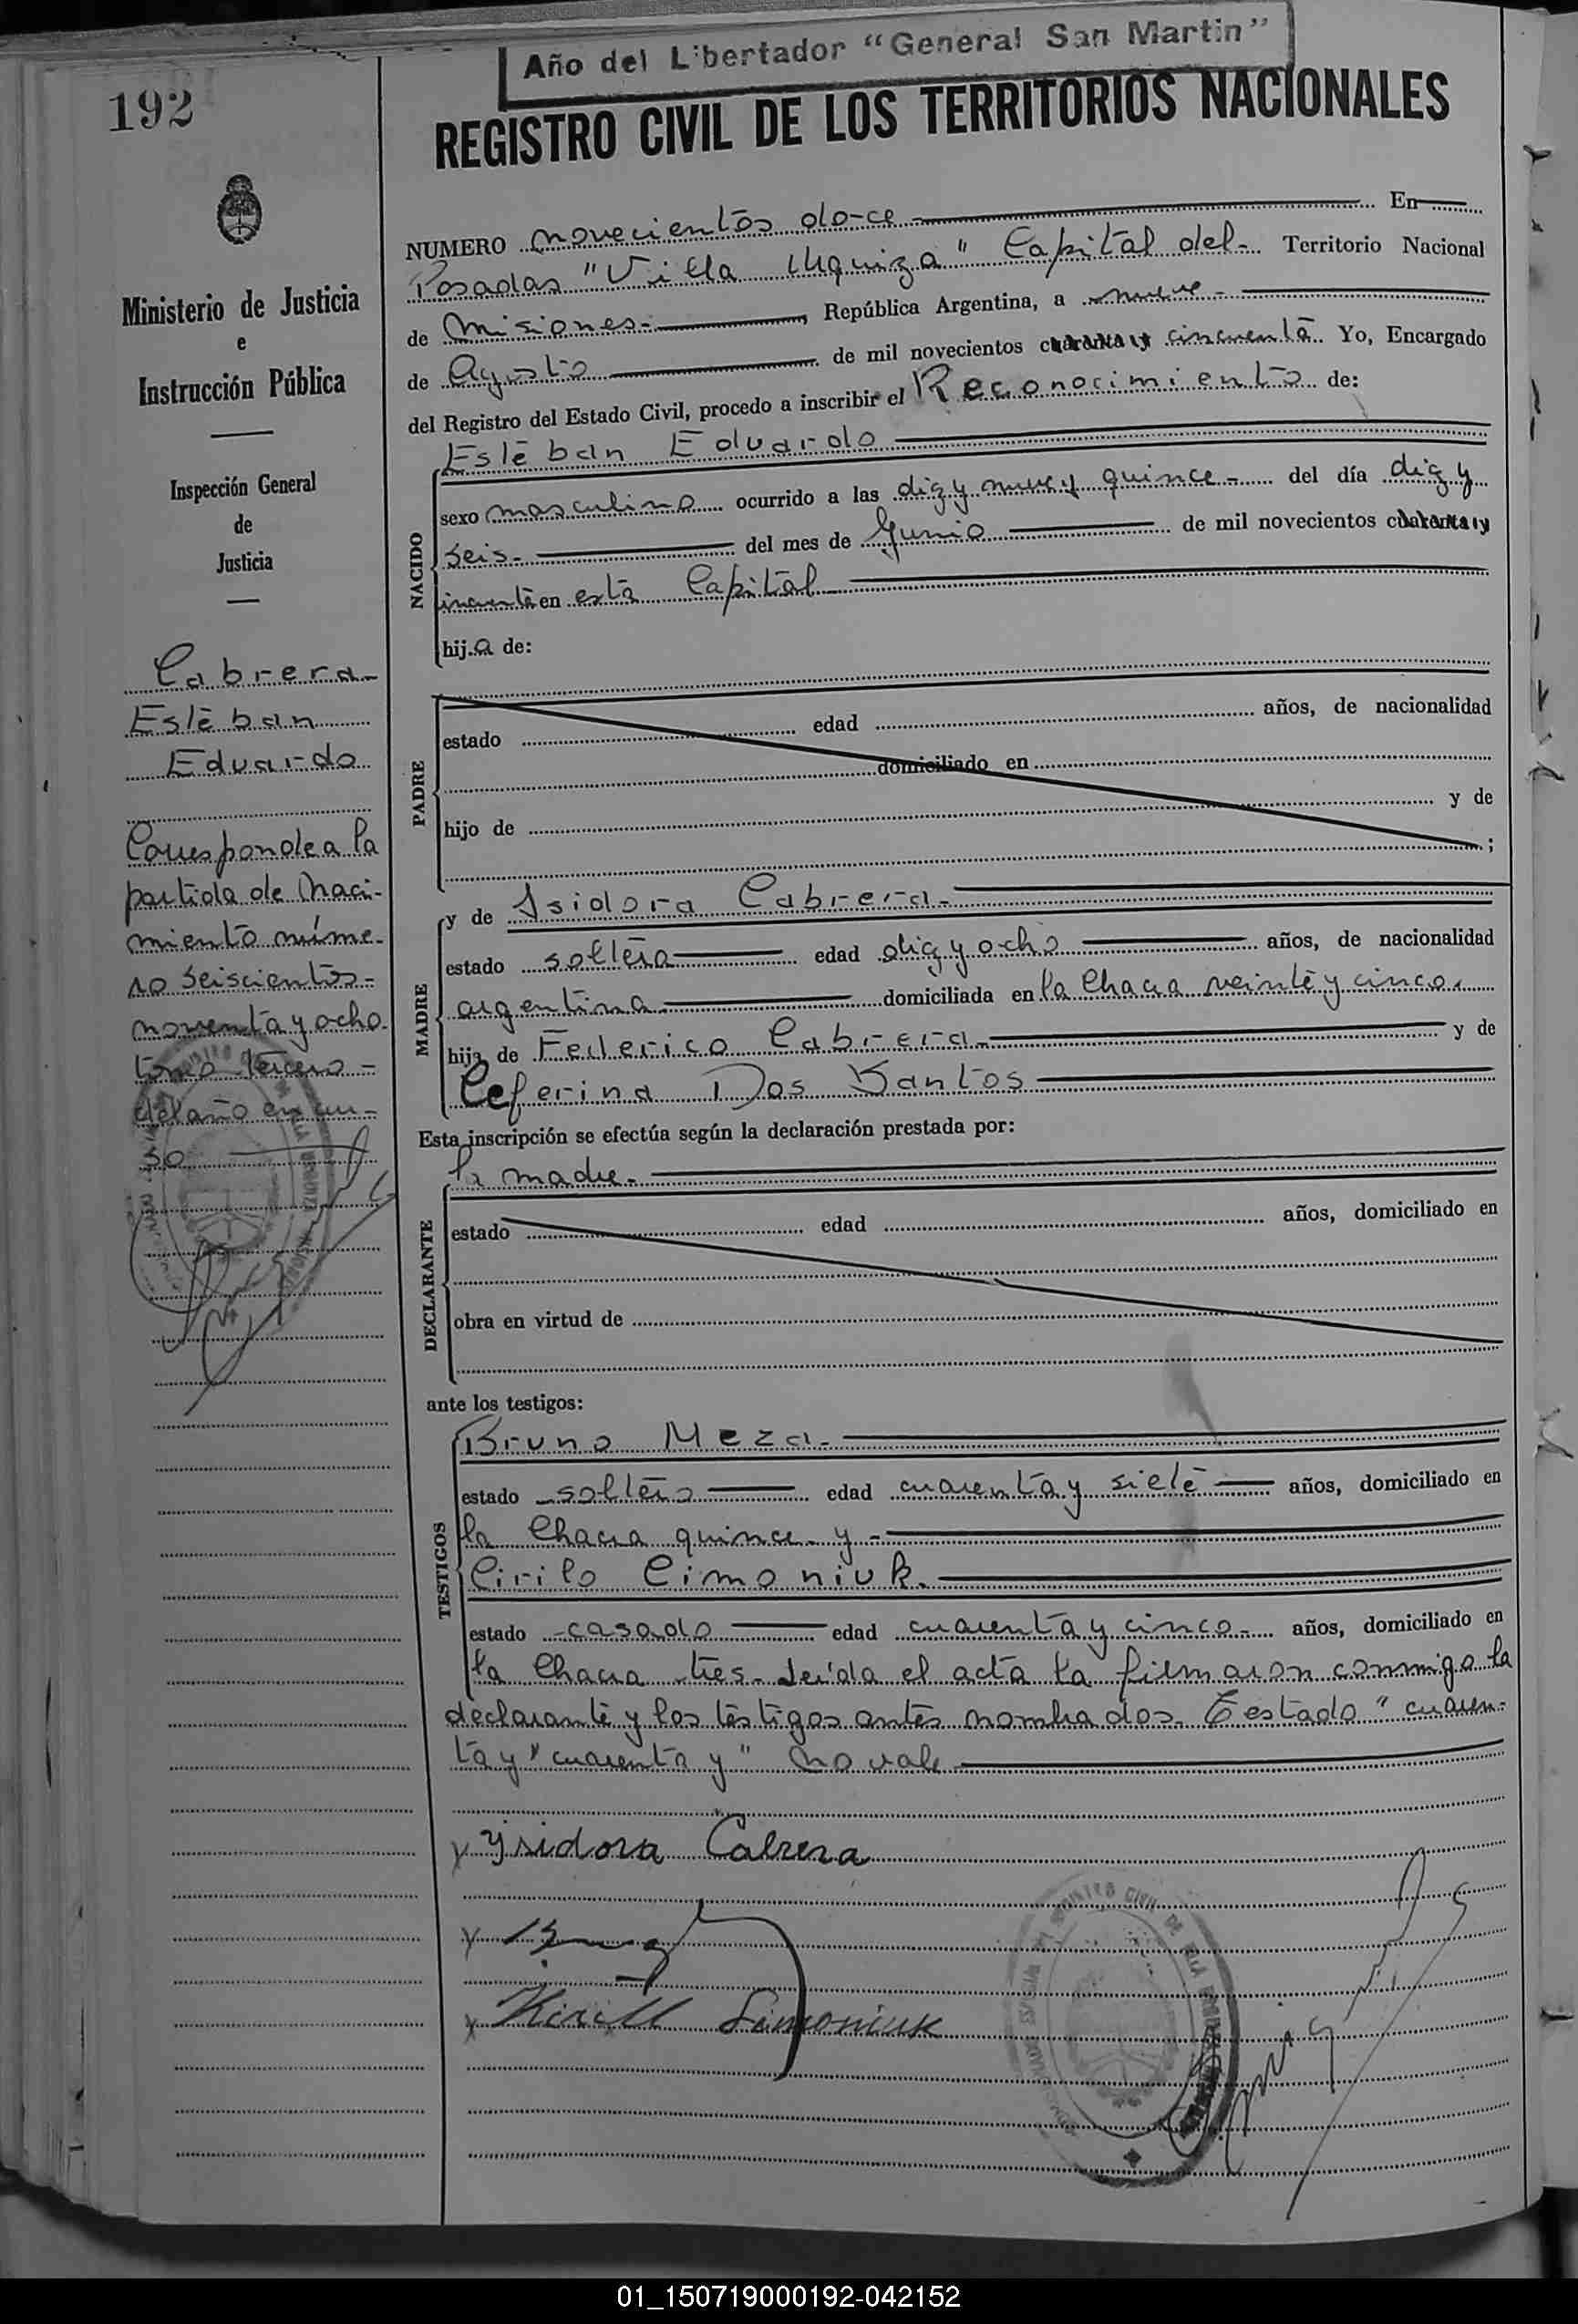 Año del Libertador "General San Martin"
192
REGISTRO CIVIL DE LOS TERRITORIOS NACIONALES
Ministerio de Justicia
e
Instrucción Pública
Inspección General
de
Justicia
Cabrera
Esteban
Eduardo
Corresponde a la
partida de Naci-
miento núme-
ro seiscientos
noventa y ocho
tomo tercero
del año en cur-
so
NUMERO novecientos doce En
Posadas "Villa Urquiza" Capital del Territorio Nacional
de Misiones República Argentina, a nueve
de Agosto de mil novecientos cuarenta y cincuenta Yo, Encargado
del Registro del Estado Civil, procedo a inscribir el Reconocimiento de:
Esteban Eduardo
NACIDO
sexo masculino ocurrido a las diez y nueve y quince del día diez y
seis del mes de Junio de mil novecientos cuarenta y
cincuenta en esta Capital
hij.o de:
PADRE
estado edad años, de nacionalidad
domiciliado en
hijo de y de
;
MADRE
y de Isidora Cabrera
estado soltera edad diez y ocho años, de nacionalidad
argentina domiciliada en la Chacra veinte y cinco.
hija de Federico Cabrera y de
Ceferina Dos Santos
Esta inscripción se efectúa según la declaración prestada por:
la madre.
DECLARANTE
estado edad años, domiciliado en
obra en virtud de
ante los testigos:
TESTIGOS
Bruno Meza
estado soltero edad cuarenta y siete años, domiciliado en
la Chacra quince y
Cirilo Cimoniuk.
estado casado edad cuarenta y cinco años, domiciliado en
la Chacra tres. Leída el acta la firmaron conmigo la
declarante y los testigos antes nombrados. Testado "cuaren-
ta y" "cuarenta y" no vale
x Ysidora Cabrera
x
x Kirill Simoniuk
01_150719000192-042152